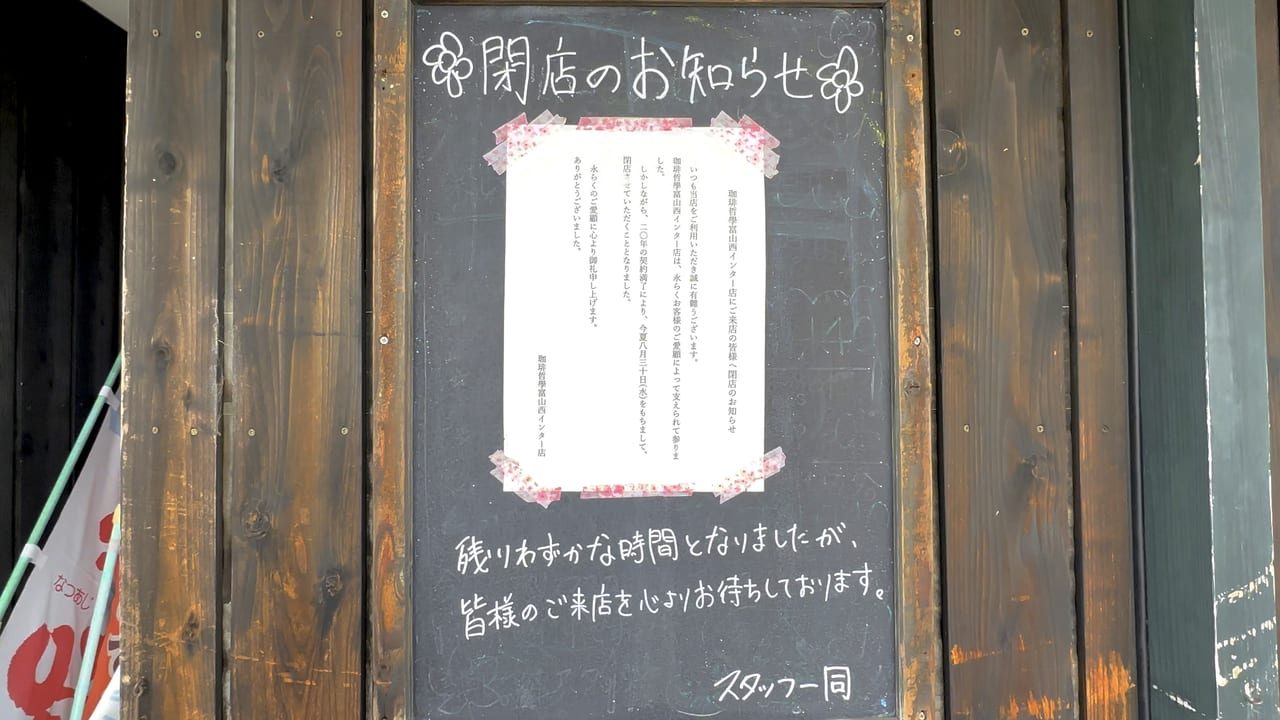 閉店のお知らせ
珈琲哲學富山西インター店にご来店の皆様へ閉店のお知らせ
いつも当店をご利用いただき誠に有難うございます。
珈琲哲學富山西インター店は、永らくお客様のご愛顧によって支えられて参りま
した。
しかしながら、二〇年の契約満了により、今夏八月三十日(水)をもちまして、
閉店させていただくこととなりました。
永らくのご愛顧に心より御礼申し上げます。
ありがとうございました。
珈琲哲學富山西インター店
残りわずかな時間となりましたが、
皆様のご来店を心よりお待ちしております。
スタッフ一同
なつあじ